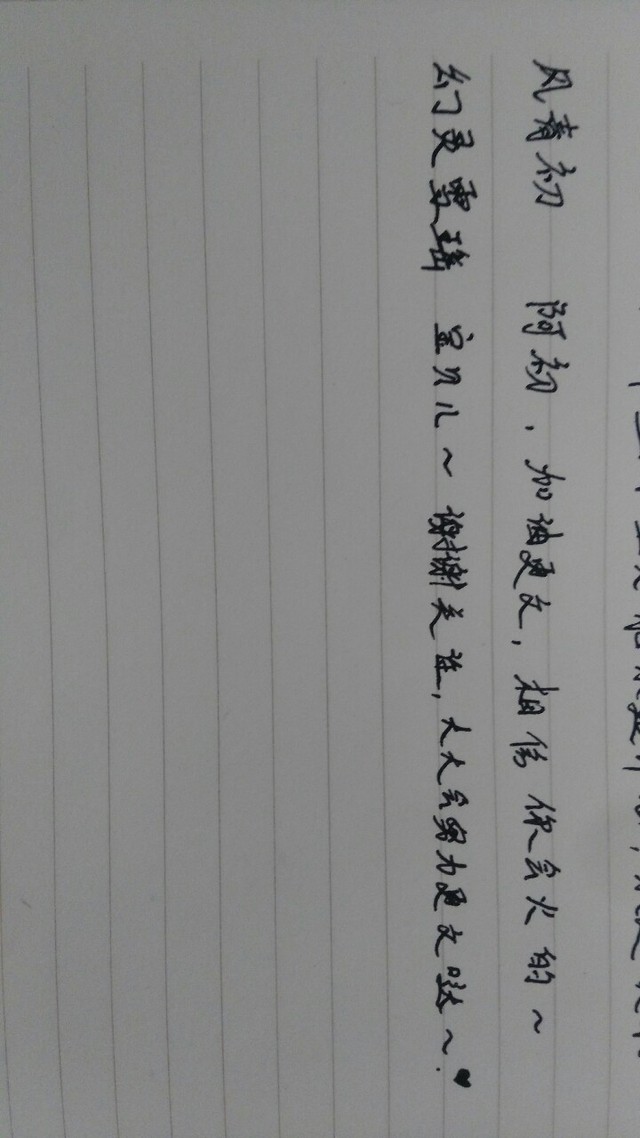 风青初 阿初，加油更文，相信你会火的～
幻灵雪瑶 宝贝儿～谢谢关注，大大会努力更文哒～.♥